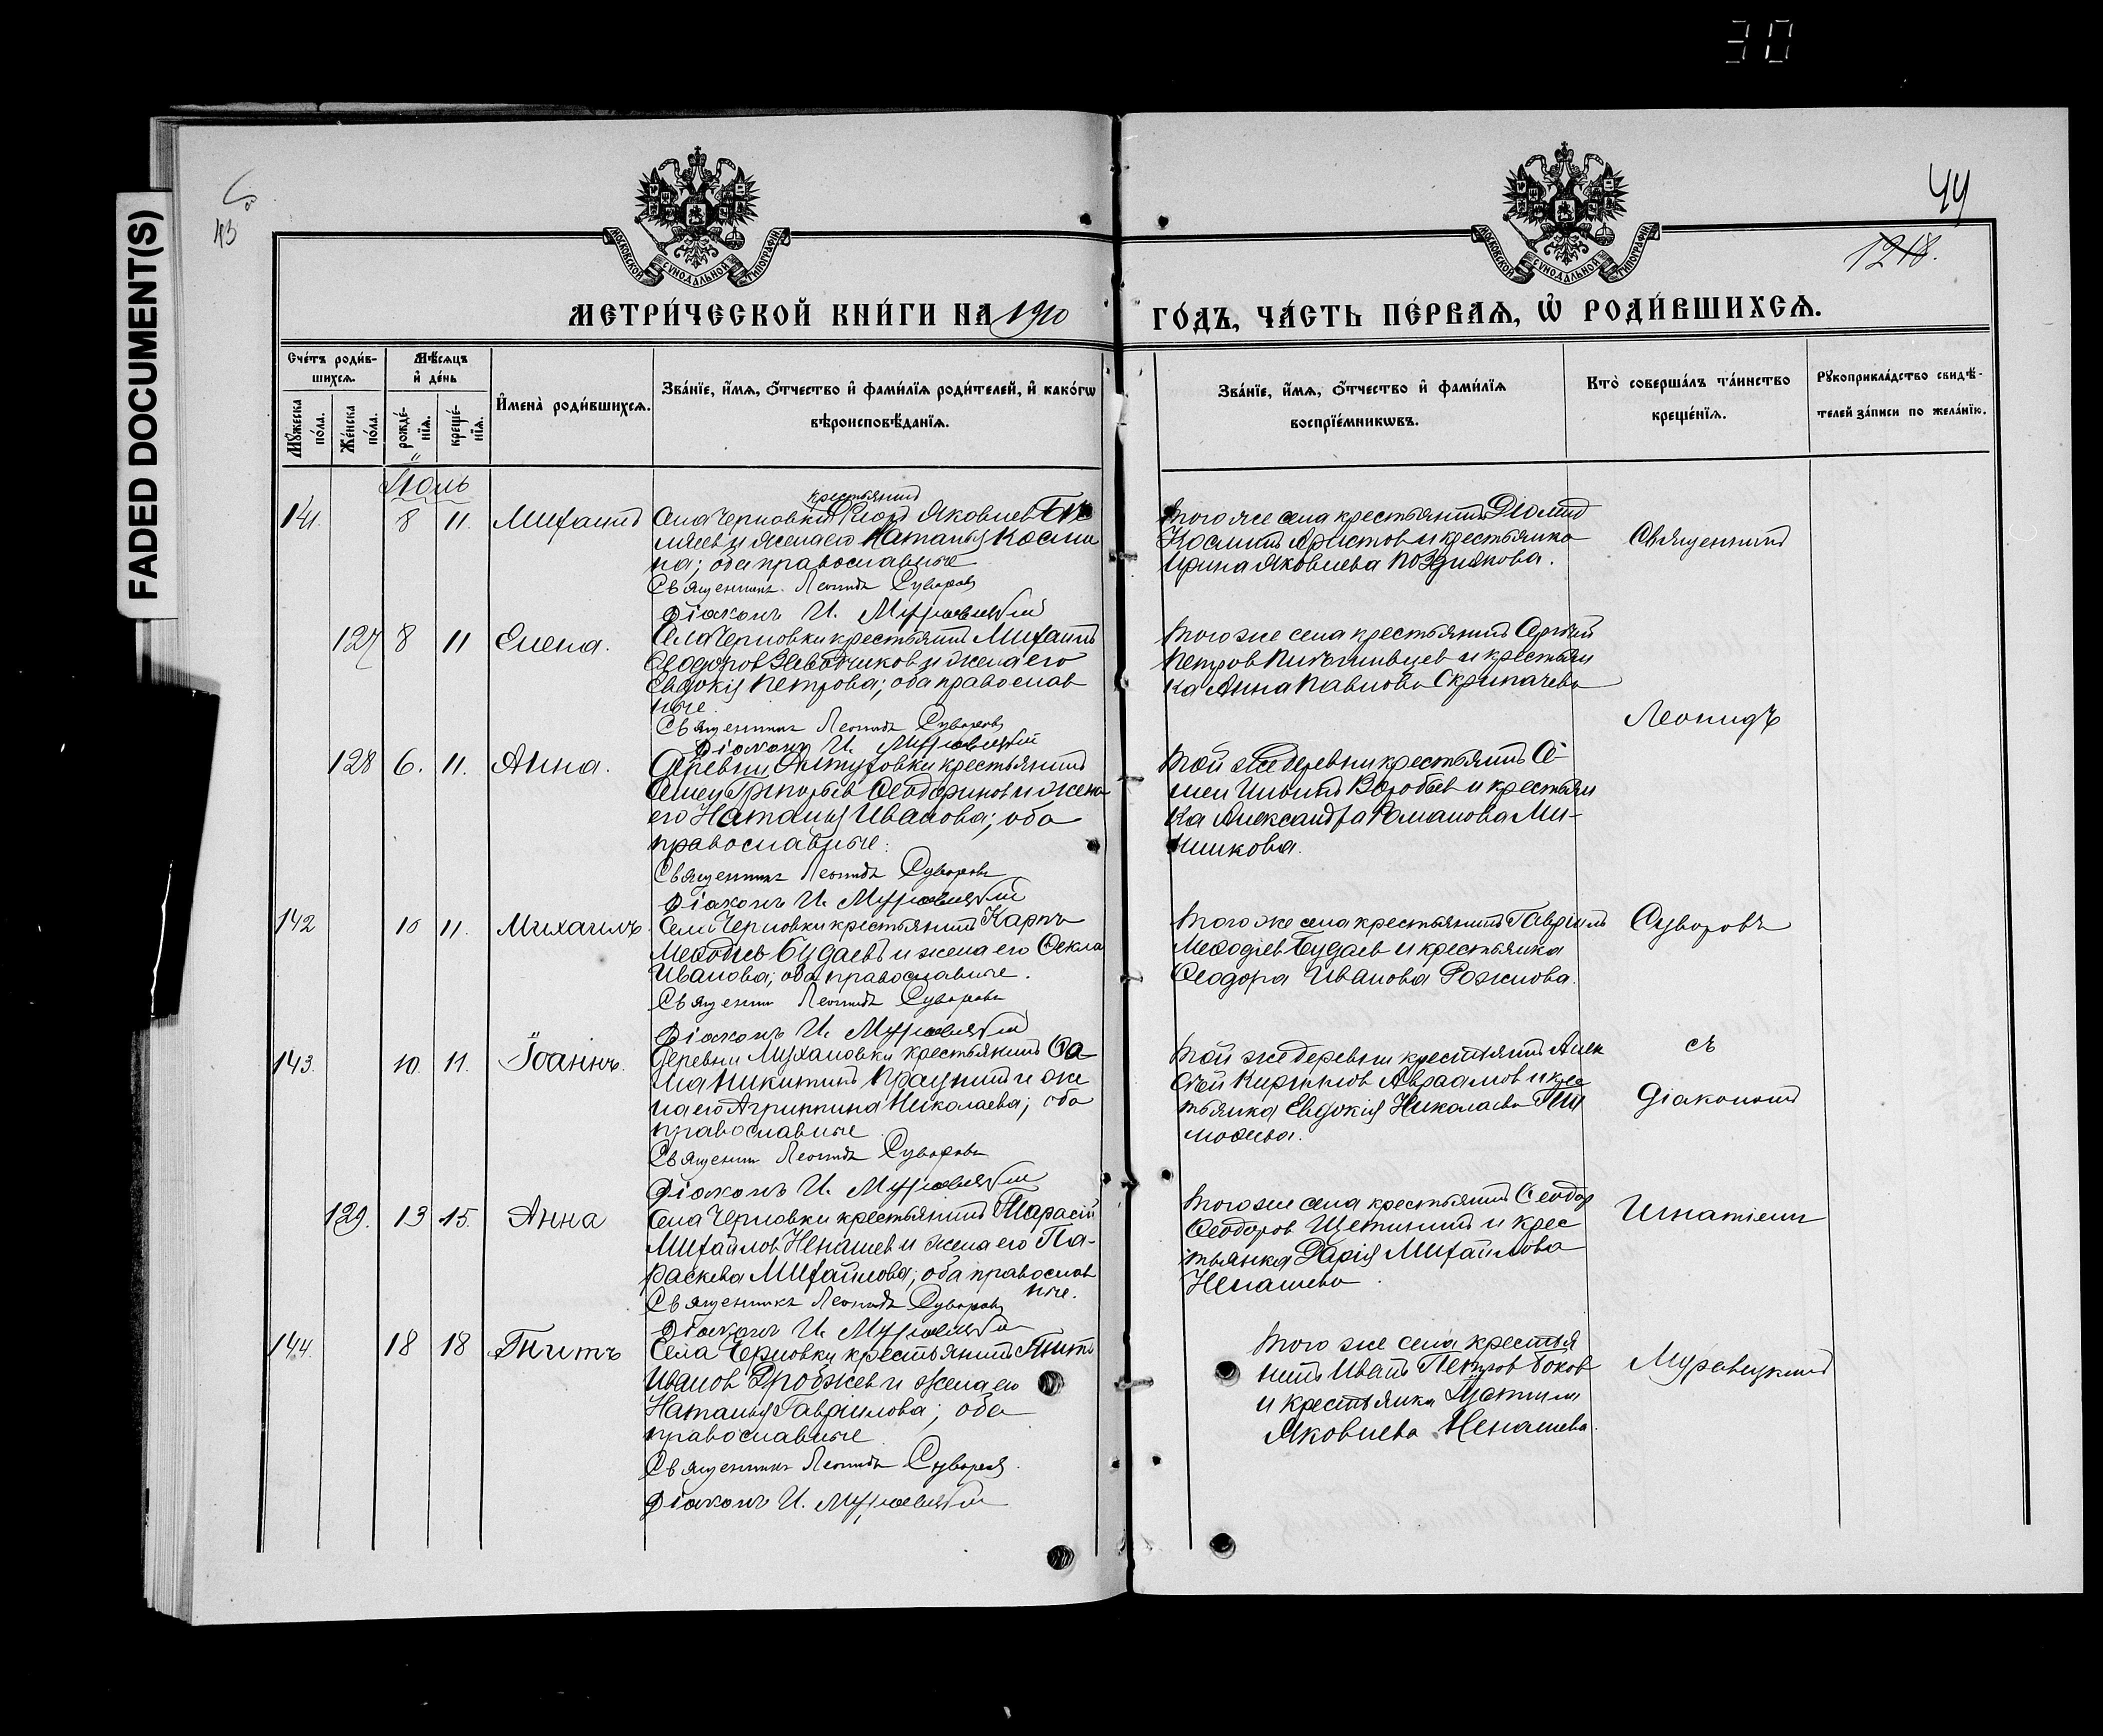 30
FADED DOCUMENT(S)
43
44
1218.
МОСКОВСКОЙ СѴНОДАЛЬНОЙ ТИПОГРАФІИ
МОСКОВСКОЙ СѴНОДАЛЬНОЙ ТИПОГРАФІИ
МЕТРИ́ЧЕСКОЙ КНИ́ГИ НА 1910 ГО́ДЪ, ЧА́СТЬ ПЕ́РВАѦ, Ѽ РОДИ́ВШИХСѦ.
Сче́тъ роди́в-
шихсѧ.
Мꙋ́жеска по́ла.
Же́нска по́ла.
Мѣ́сѧцъ
и҆ де́нь
рожде́-
нїѧ.
креще́-
нїѧ.
И҆мена̀ роди́вшихсѧ.
Зва́нїе, и҆́мѧ, ѻ҆́тчество и҆ фами́лїѧ роди́телей, и҆ како́гѡ
вѣроисповѣ́данїѧ.
Зва́нїе, и҆́мѧ, ѻ҆́тчество и҆ фами́лїѧ
воспрїе́мникѡвъ.
Кто̀ соверша́лъ та́инство
креще́нїѧ.
Рꙋкоприкла́дство свидѣ́-
телей за́писи по жела́нїю.
Іюль
141. 8 11. Михаилъ
крестьянинъ
Села Черновки Яковлев
и жена его Наталья Косми
на; оба православные
Священникъ Леонидъ Суворовъ
Діаконъ И. Муравицкій
того же села крестьянинъ Діомид
Космин Аристов и крестьянка
Ирина Яковлева Позднякова.
Священникъ
127 8 11 Елена.
Села Черновки крестьянинъ Михаилъ
Ѳеодоров и жена его
Евдокія Петрова; оба православ
ные.
Священникъ Леонидъ Суворовъ
Діаконъ И. Муравицкій
того же села крестьянинъ Сергей
Петров и крестьян
ка Анна Павлова Скрипачева
Леонидъ
128 6. 11. Анна.
Деревни крестьянинъ
Семен Григорьев и жена
его Наталья Иванова; оба
православные.
Священникъ Леонидъ Суворовъ
Діаконъ И. Муравицкій
той же деревни крестьянинъ Се-
мен Ильинъ Воробьев и крестьян
ка Александра Романова Ми-
шикова.
142 10 11. Михаилъ.
Села Черновки крестьянинъ Карпъ
Меѳодіев Будаевъ и жена его Ѳекла
Иванова; оба православные.
Священник Леонидъ Суворовъ
Діаконъ И. Муравицкій
того же села крестьянинъ Гавріилъ
Меѳодіев Будаев и крестьянка
Ѳеодора Иванова Рожнова.
Суворовъ
143. 10. 11. Іоаннъ.
Деревни Мухановки крестьянинъ Ѳо-
ма Никитинъ и же
на его Агриппина Николаева; оба
православные
Священник Леонидъ Суворовъ
Діаконъ И. Муравицкій
той же деревни крестьянинъ Алек
сей Кириллов Авраамов и крес
тьянка Евдокія Николаева Ти
моѳеева.
съ
Діакономъ
129. 13 15. Анна
Села Черновки крестьянинъ Тарасій
Михайлов Ненашев и жена его Па-
раскева Михайлова; оба православ
ные.
Священникъ Леонидъ Суворовъ
Діаконъ И. Муравицкій
того же села крестьянинъ Ѳеодор
Ѳеодоров Щетинин и крес
тьянка Дарія Михайлова
Ненашева.
Игнатіемъ
144. 18 18 Титъ
Села Черновки крестьянинъ Титъ
Иванов Дрожжев и жена его
Наталья Гаврилова; оба
православные
Священникъ Леонидъ Суворовъ
Діаконъ И. Муравицкій
того же села крестья
нинъ Иванъ Петров Боков
и крестьянка
Яковлева Ненашева.
Муравицкимъ